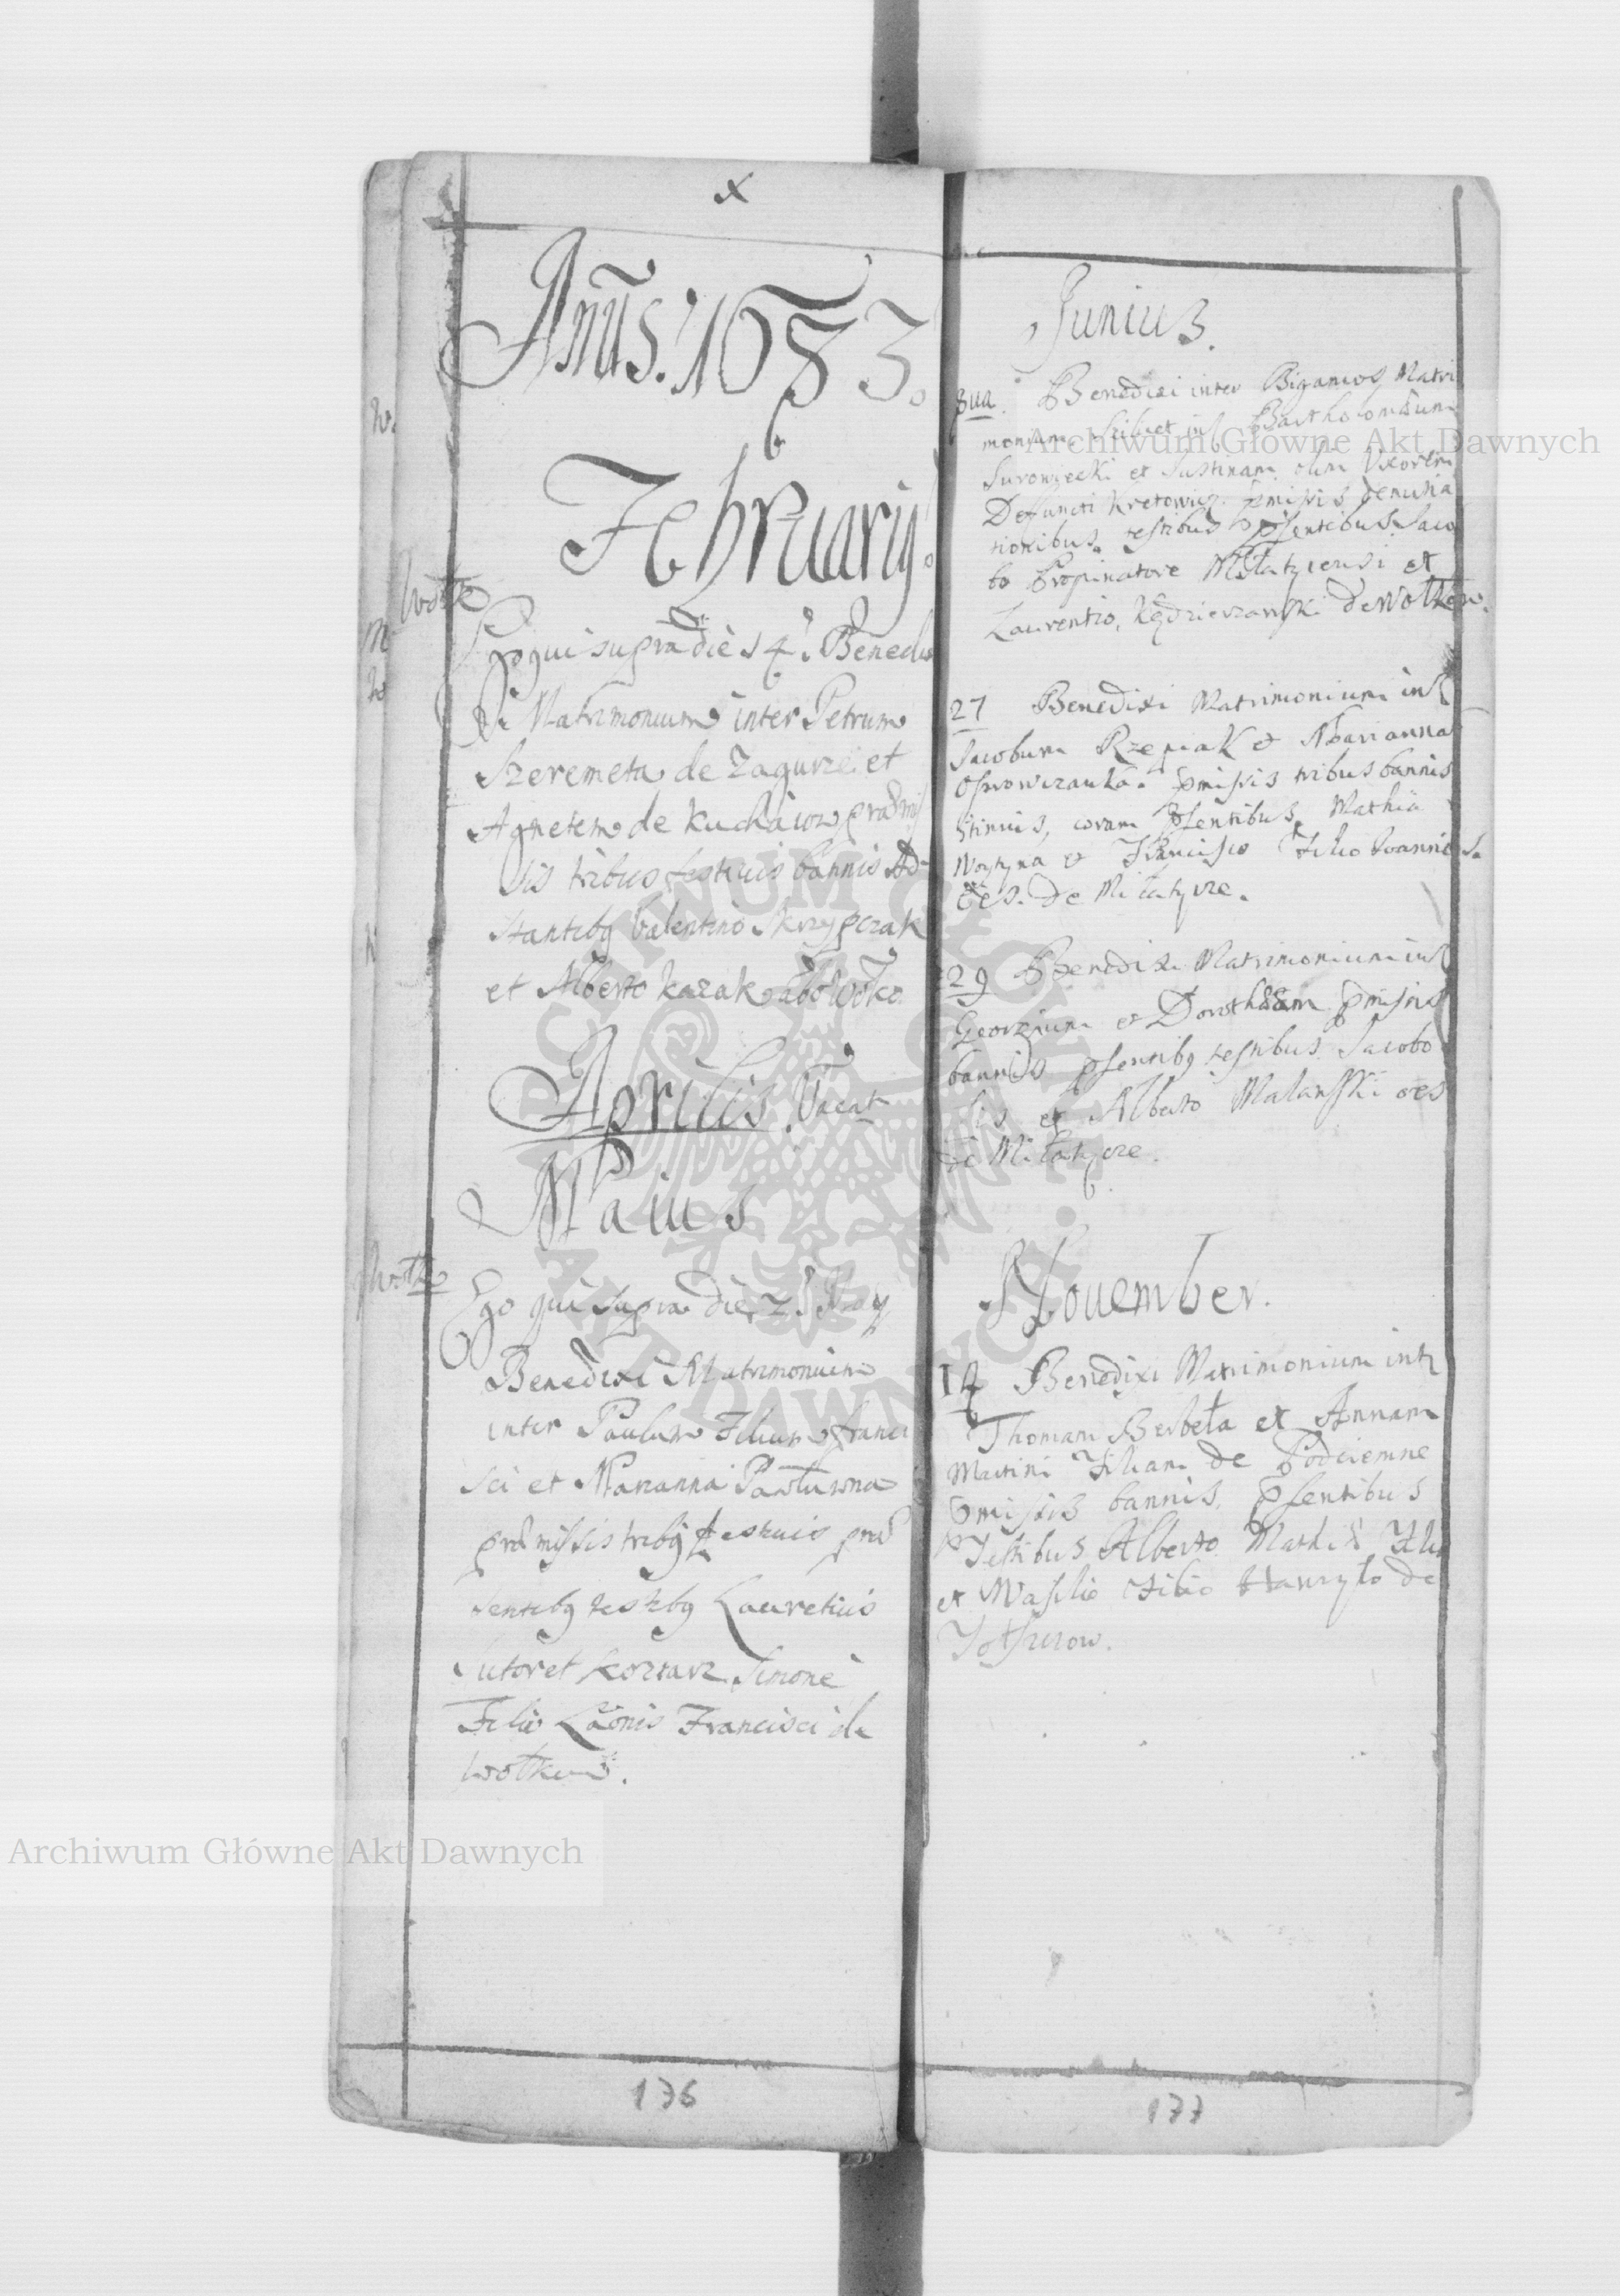 x
Anūs. 1683.
Februarij.
Wolke
Ego qui supra die 14. Benedi
xi Matrimonium inter Petrum
Szeremeta de Zagurze et
Agnetem de Kuchaiow præmis
sis tribus festiuis bannis Ad
stantibq Valentino Skrzypczak
et Alberto Kazak
Aprilis Vacat
Maius
Ego qui supra die 25 May
Benedixi Matrimonium
inter Paulum Filium Franci
sci et Marianna Pawluwna
præmissis tribq festiuis præ
sentibq testibq Lauretius
Sutor et Simone
Francisci de
Wolkuw.
136
Junius.
3ua. Benedixi inter Bigamos Matri
monium
Surowiecki et Justinam olim Uxorem
Defuncti Kretowicz. pmissis denutia
tionibus testibus psentibus Jaco
bo Propinatore Milatycensi et
Laurentio, Kędzierzawski de Wolkow.
27 Benedixi Matrimonium int
Jacobum Rzepiak et Marianna
pmissis tribus bannis
stiuis, coram psentibus, Mathia
et Francisco Filio Joannis
oes. de Milatycze.
29 Benedixi Matrimonium int
Georgium et Dorothæam pmissis
bannis psentibq testibus Jacobo
et Alberto Malanski oes
de Milatycze.
Nouember.
14 Benedixi Matrimonium int
Thomam Berbeła et Annam
Martini Filiam de Podciemne
pmissis bannis, psentibus
Testibus Alberto Mathiæ Filio
et Wasilio Filio Hawryło de
177
Archiwum Główne Akt Dawnych
Archiwum Główne Akt Dawnych
ARCHIWUM GŁÓWNE AKT DAWNYCH